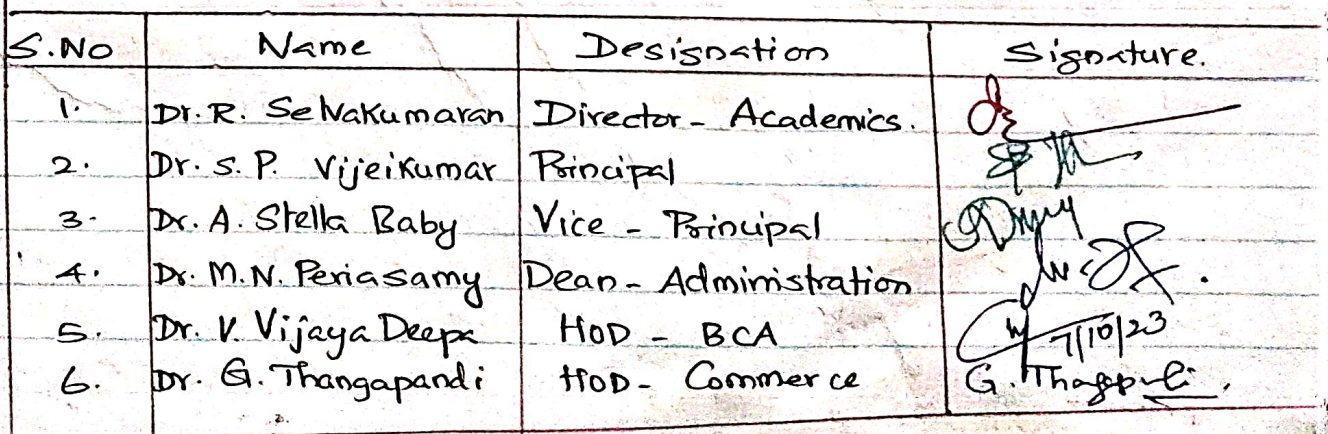 S.No Name Designation Signature.
1. Dr. R. Selvakumaran Director - Academics.
2. Dr. S. P. Vijeikumar Principal
3. Dr. A. Stella Baby Vice - Principal
4. Dr. M.N. Periasamy Dean - Administration
5. Dr. V. Vijaya Deepa HOD - BCA 7/10/23
6. Dr. G. Thangapandi HOD - Commerce G.